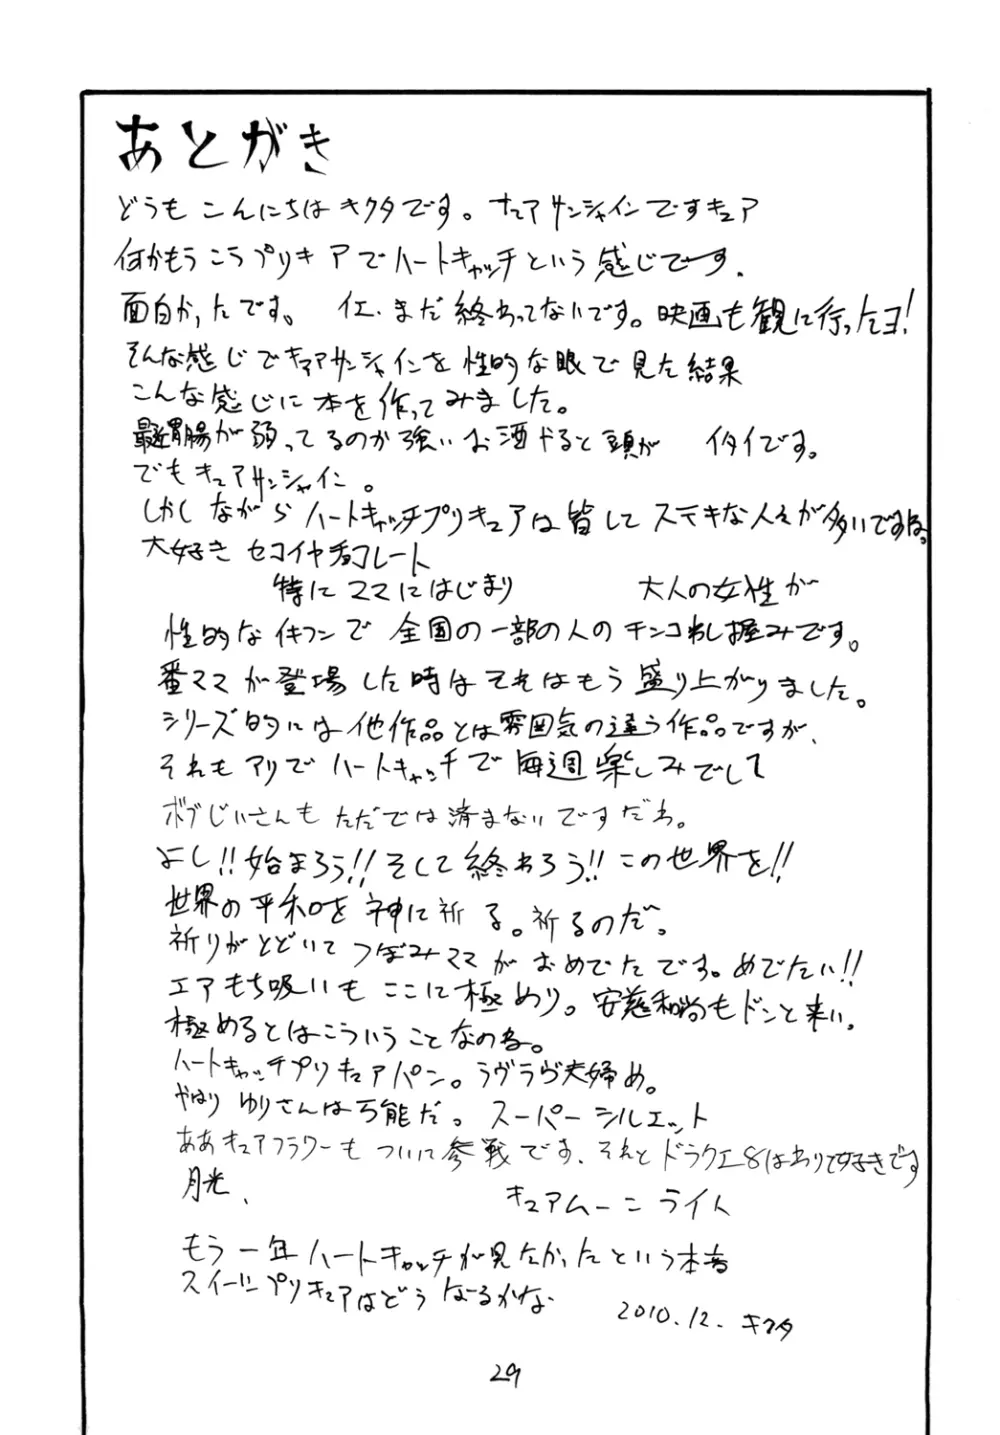 あとがき
どうも こんにちは キクタです。キュアサンシャインですキュア
何かもうこうプリキュアでハートキャッチという感じです。
面白かったです。 イエ、まだ終わってないです。映画も観に行ったヨ!
そんな感じでキュアサンシャインを性的な眼で見た結果
こんな感じに本を作ってみました。
最近胃腸が弱ってるのか強いお酒やると頭が イタイです。
でもキュアサンシャイン。
しかしながらハートキャッチプリキュアは皆してステキな人が多いですな。
大好き セコイヤチョコレート
特にママにはじまり 大人の女性が
性的なイキフンで全国の一部の人のチンコわし掴みです。
番ママが登場した時はそれはもう盛り上がりました。
シリーズ的には他作品とは雰囲気の違う作品ですが、
それもアリでハートキャッチで毎週楽しみでして
ボブじいさんもただでは済まないですだわ。
よし!!始まろう!!そして終わろう!!この世界を!!
世界の平和を神に祈る。祈るのだ。
祈りがとどいてつぼみママがおめでたです。めでたい!!
エアもち吸いもここに極めり。安慈和尚もドンと来い。
極めるとはこういうことなのね。
ハートキャッチプリキュアパン。ラヴラヴ夫婦め。
やはりゆりさんは万能だ。スーパーシルエット
ああキュアフラワーもついに参戦です。それとドラクエ8はわりと好きです
月光、 キュアムーンライト
もう一年ハートキャッチが見たかったという本音
スイートプリキュアはどうなるかな
2010.12. キクタ
29